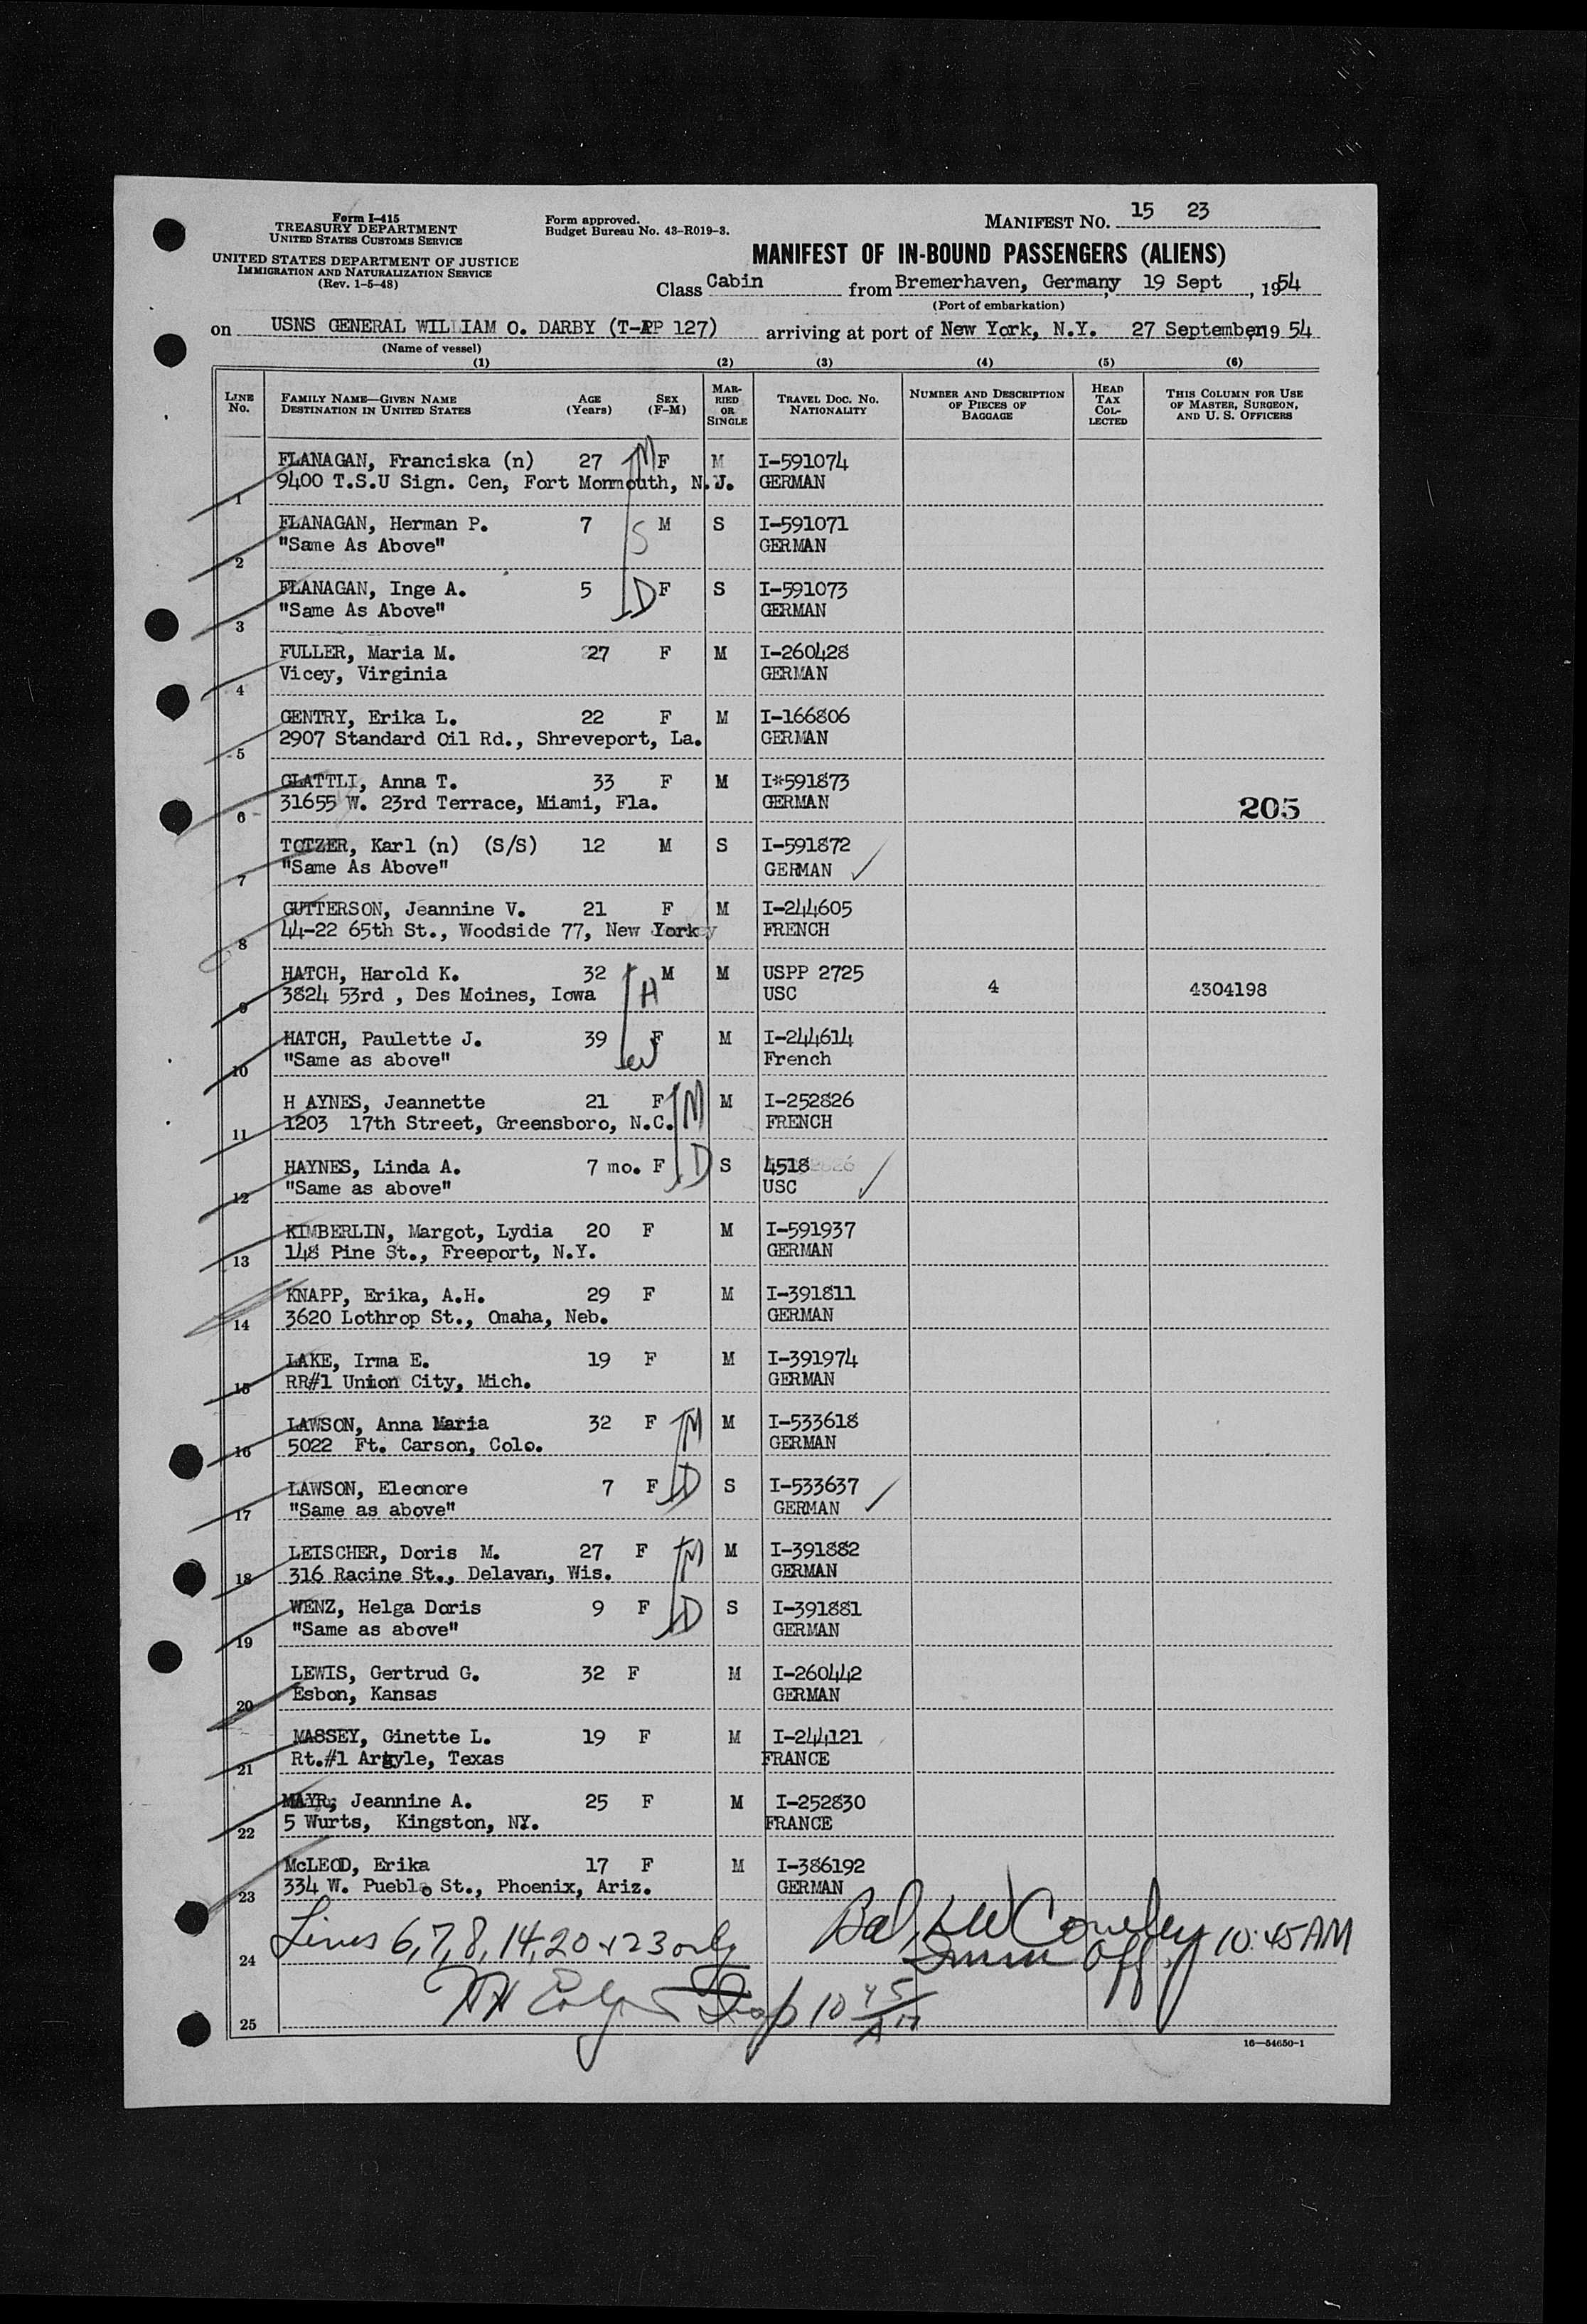 Form I-415
TREASURY DEPARTMENT
UNITED STATES CUSTOMS SERVICE
UNITED STATES DEPARTMENT OF JUSTICE
IMMIGRATION AND NATURALIZATION SERVICE
(Rev. 1-5-48)
Form approved.
Budget Bureau No. 43-R019-3.
MANIFEST NO. 15 23
MANIFEST OF IN-BOUND PASSENGERS (ALIENS)
Class Cabin from Bremerhaven, Germany, 19 Sept, 1954
(Port of embarkation)
on USNS GENERAL WILLIAM O. DARBY (T-AP 127) arriving at port of New York, N.Y. 27 September, 1954
(Name of vessel)
(1) (2) (3) (4) (5) (6)
LINE No. FAMILY NAME—GIVEN NAME DESTINATION IN UNITED STATES AGE (Years) SEX (F-M) MARRIED OR SINGLE TRAVEL DOC. NO. NATIONALITY NUMBER AND DESCRIPTION OF PIECES OF BAGGAGE HEAD TAX COLLECTED THIS COLUMN FOR USE OF MASTER, SURGEON, AND U. S. OFFICERS
FLANAGAN, Franciska (n) 27 M F M I-591074
1 9400 T.S.U Sign. Cen, Fort Monmouth, N.J. GERMAN
FLANAGAN, Herman P. 7 S M S I-591071
2 "Same As Above" GERMAN
FLANAGAN, Inge A. 5 D F S I-591073
3 "Same As Above" GERMAN
FULLER, Maria M. 27 F M I-260428
4 Vicey, Virginia GERMAN
GENTRY, Erika L. 22 F M I-166806
5 2907 Standard Oil Rd., Shreveport, La. GERMAN
GLATTLI, Anna T. 33 F M I*591873
6 31655 W. 23rd Terrace, Miami, Fla. GERMAN 205
TOTZER, Karl (n) (S/S) 12 M S I-591872
7 "Same As Above" GERMAN ✓
GUTTERSON, Jeannine V. 21 F M I-244605
8 44-22 65th St., Woodside 77, New York FRENCH
HATCH, Harold K. 32 H M M USPP 2725
9 3824 53rd , Des Moines, Iowa USC 4 4304198
HATCH, Paulette J. 39 W F M I-244614
10 "Same as above" French
H AYNES, Jeannette 21 F M M I-252826
11 1203 17th Street, Greensboro, N.C. FRENCH
HAYNES, Linda A. 7 mo. F D S 4518
12 "Same as above" USC ✓
KIMBERLIN, Margot, Lydia 20 F M I-591937
13 148 Pine St., Freeport, N.Y. GERMAN
KNAPP, Erika, A.H. 29 F M I-391811
14 3620 Lothrop St., Omaha, Neb. GERMAN
LAKE, Irma E. 19 F M I-391974
15 RR#1 Union City, Mich. GERMAN
LAWSON, Anna Maria 32 F M M I-533618
16 5022 Ft. Carson, Colo. GERMAN
LAWSON, Eleonore 7 F D S I-533637
17 "Same as above" GERMAN ✓
LEISCHER, Doris M. 27 F M M I-391882
18 316 Racine St., Delavan, Wis. GERMAN
WENZ, Helga Doris 9 F D S I-391881
19 "Same as above" GERMAN
LEWIS, Gertrud G. 32 F M I-260442
20 Esbon, Kansas GERMAN
MASSEY, Ginette L. 19 F M I-244121
21 Rt.#1 Argyle, Texas FRANCE
MAYR, Jeannine A. 25 F M I-252830
22 5 Wurts, Kingston, NY. FRANCE
McLEOD, Erika 17 F M I-386192
23 334 W. Pueblo St., Phoenix, Ariz. GERMAN
24 Lines 6,7,8,14,20 & 23 only Bal, 10:45 AM
Imm Off
25 Insp 10 45 AM
16—54650-1